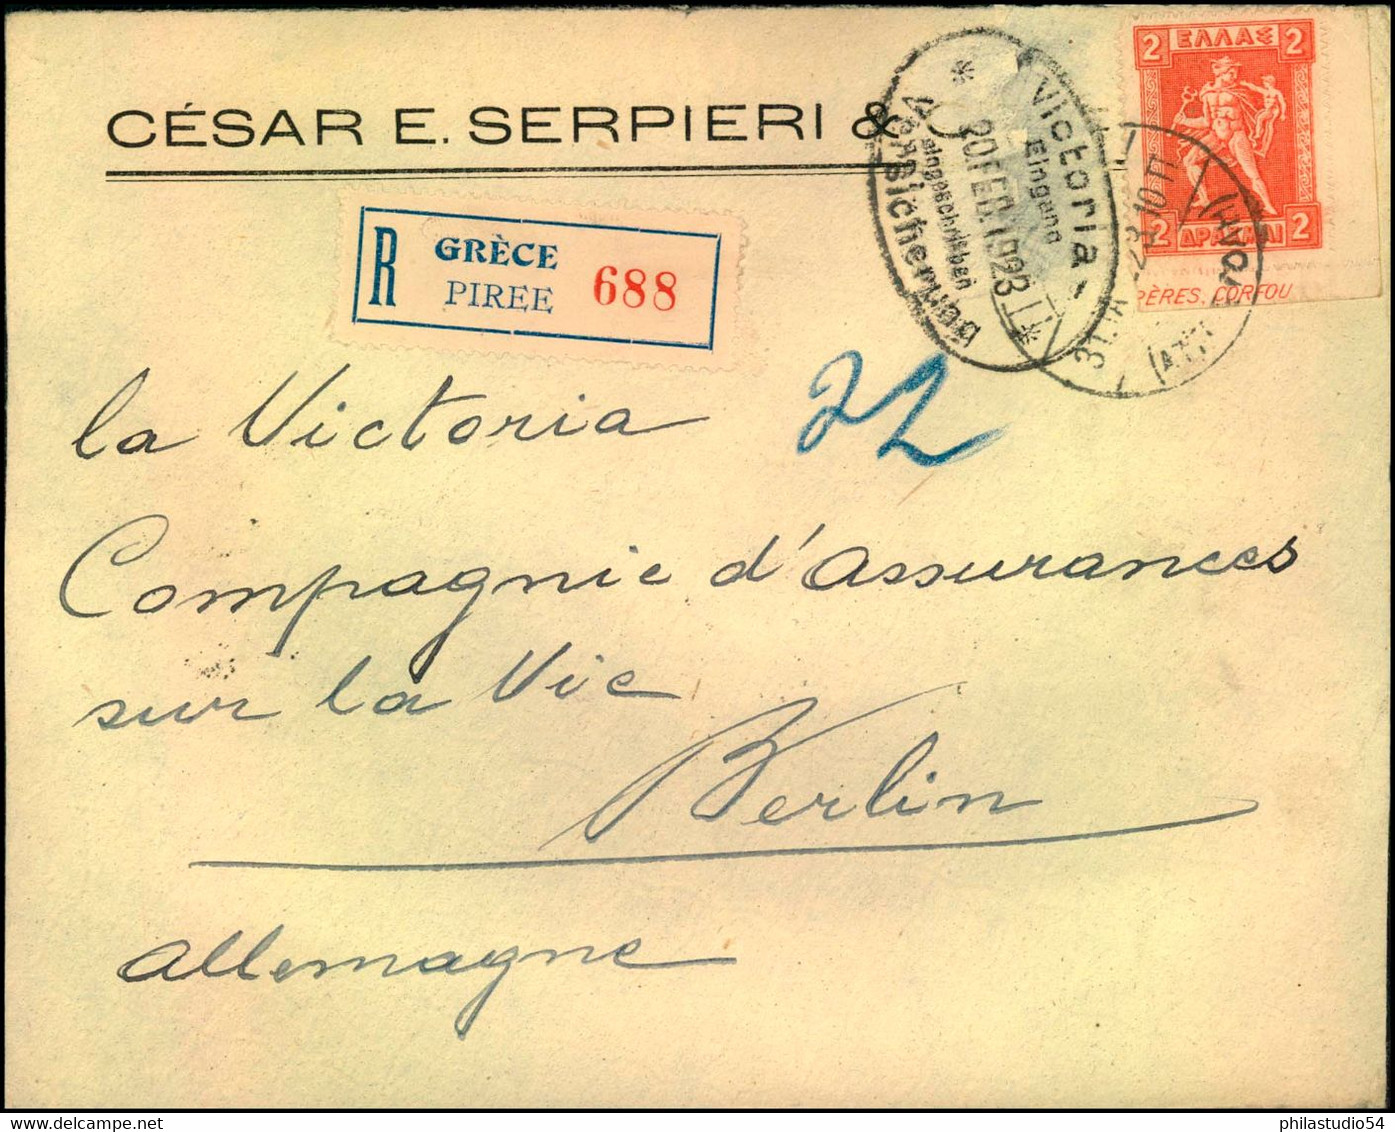 CÉSAR E. SERPIERI &
R GRÈCE
PIREE 688
Victoria -
Eingang
20 FEB. 1923
eingeschrieben
Versicherung
2 ΕΛΛΑΣ 2
2 ΔΡΑΧΜΑΙ 2
PÈRES. CORFOU
22
la Victoria
Compagnie d'assurances
sur la Vie
Berlin
allemagne
philastudio54